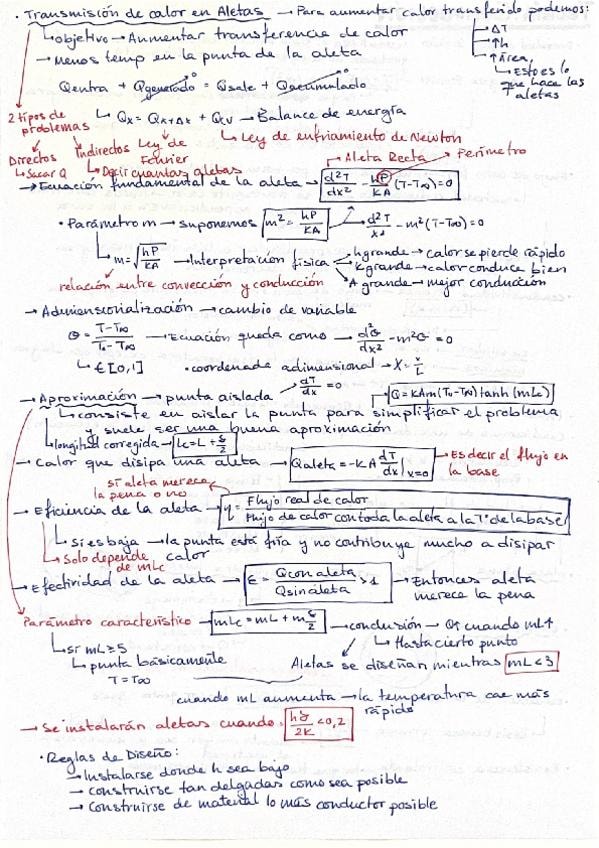 · Transmisión de calor en Aletas → Para aumentar calor transferido podemos:
→ ΔT
→ ↑h
→ ↑Área,
↳ Esto es lo que hace las aletas
↳ objetivo → Aumentar transferencia de calor
→ Menos temp en la punta de la aleta
Qentra + Qgenerado⁰ = Qsale + Qacumulado⁰
↳ Qx = Qx+Δx + Qcv → Balance de energía
2 tipos de problemas
Directos
↳ Sacar Q
Indirectos
↳ Decir cuantas aletas
Ley de Fourier
↳ Ley de enfriamiento de Newton
→ Ecuación fundamental de la aleta → d²T/dx² - hP/KA (T-T∞) = 0
→ Aleta Recta
Perímetro
· Parámetro m → suponemos m² = hP/KA → d²T/xd - m²(T-T∞) = 0
↳ m = √(hP/KA) → Interpretación física
h grande → calor se pierde rápido
K grande → calor conduce bien
A grande → mejor conducción
relación entre convección y conducción
→ Adimensionalización → cambio de variable
Θ = (T-T∞)/(To-T∞) → Ecuación queda como → d²Θ/dx² - m²Θ = 0
↳ ∈ [0,1] · coordenada adimensional → X = x/L
→ Aproximación → punta aislada → dT/dx = 0
Q = KAm(To-T∞) tanh(mLc)
↳ consiste en aislar la punta para simplificar el problema
y suele ser una buena aproximación
↳ longitud corregida → Lc = L + δ/2
→ Calor que disipa una aleta → Qaleta = -KA dT/dx |x=0
→ Es decir el flujo en la base
si aleta merece la pena o no
→ Eficiencia de la aleta → η = Flujo real de calor / Flujo de calor con toda la aleta a la Tª de la base
↳ si es baja → la punta está fría y no contribuye mucho a disipar
calor
↳ Solo depende de mLc
→ Efectividad de la aleta → ε = Qcon aleta / Qsin aleta > 1 → Entonces aleta
merece la pena
Parámetro característico → mLc = mL + m δ/2 → conclusión → Q↑ cuando mL↑
↳ Hasta cierto punto
↳ si mL ≥ 5
↳ punta básicamente
T = T∞
Aletas se diseñan mientras mL < 3
cuando mL aumenta → la temperatura cae más
rápido
→ Se instalarán aletas cuando: hδ/2K < 0,2
· Reglas de Diseño:
→ Instalarse donde h sea bajo
→ construirse tan delgadas como sea posible
→ Construirse de material lo más conductor posible